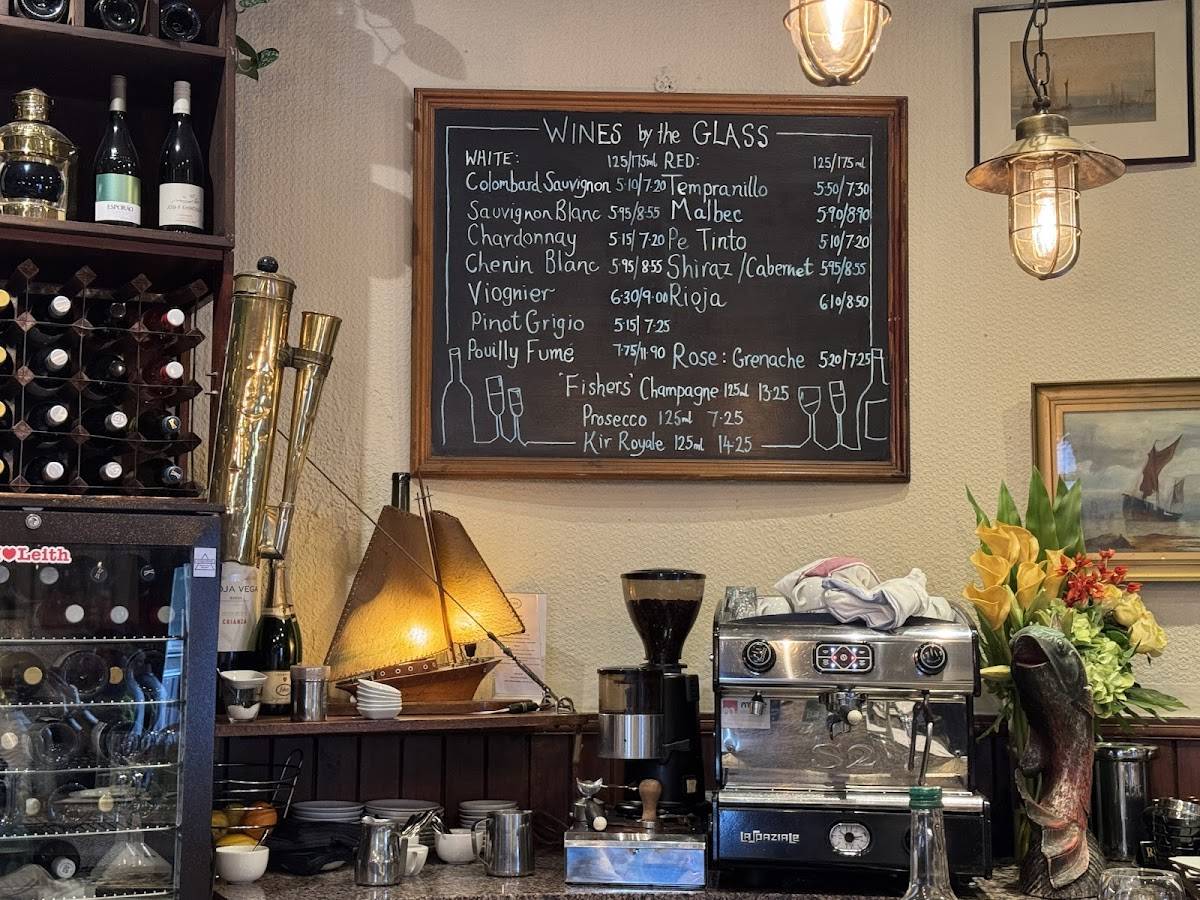 WINES by the GLASS
WHITE: 125/175ml
Colombard Sauvignon 5·10/7·20
Sauvignon Blanc 5·95/8·55
Chardonnay 5·15/7·20
Chenin Blanc 5·95/8·55
Viognier 6·30/9·00
Pinot Grigio 5·15/7·25
Pouilly Fumé 7·75/11·90
RED: 125/175ml
Tempranillo 5·50/7·30
Malbec 5·90/8·90
Pe Tinto 5·10/7·20
Shiraz/Cabernet 5·95/8·55
Rioja 6·10/8·50
Rose: Grenache 5·20/7·25
'Fishers' Champagne 125ml 13·25
Prosecco 125ml 7·25
Kir Royale 125ml 14·25
ESPORÃO
Leith
OJA VEGA
CRIANZA
S2
LASPAZIALE